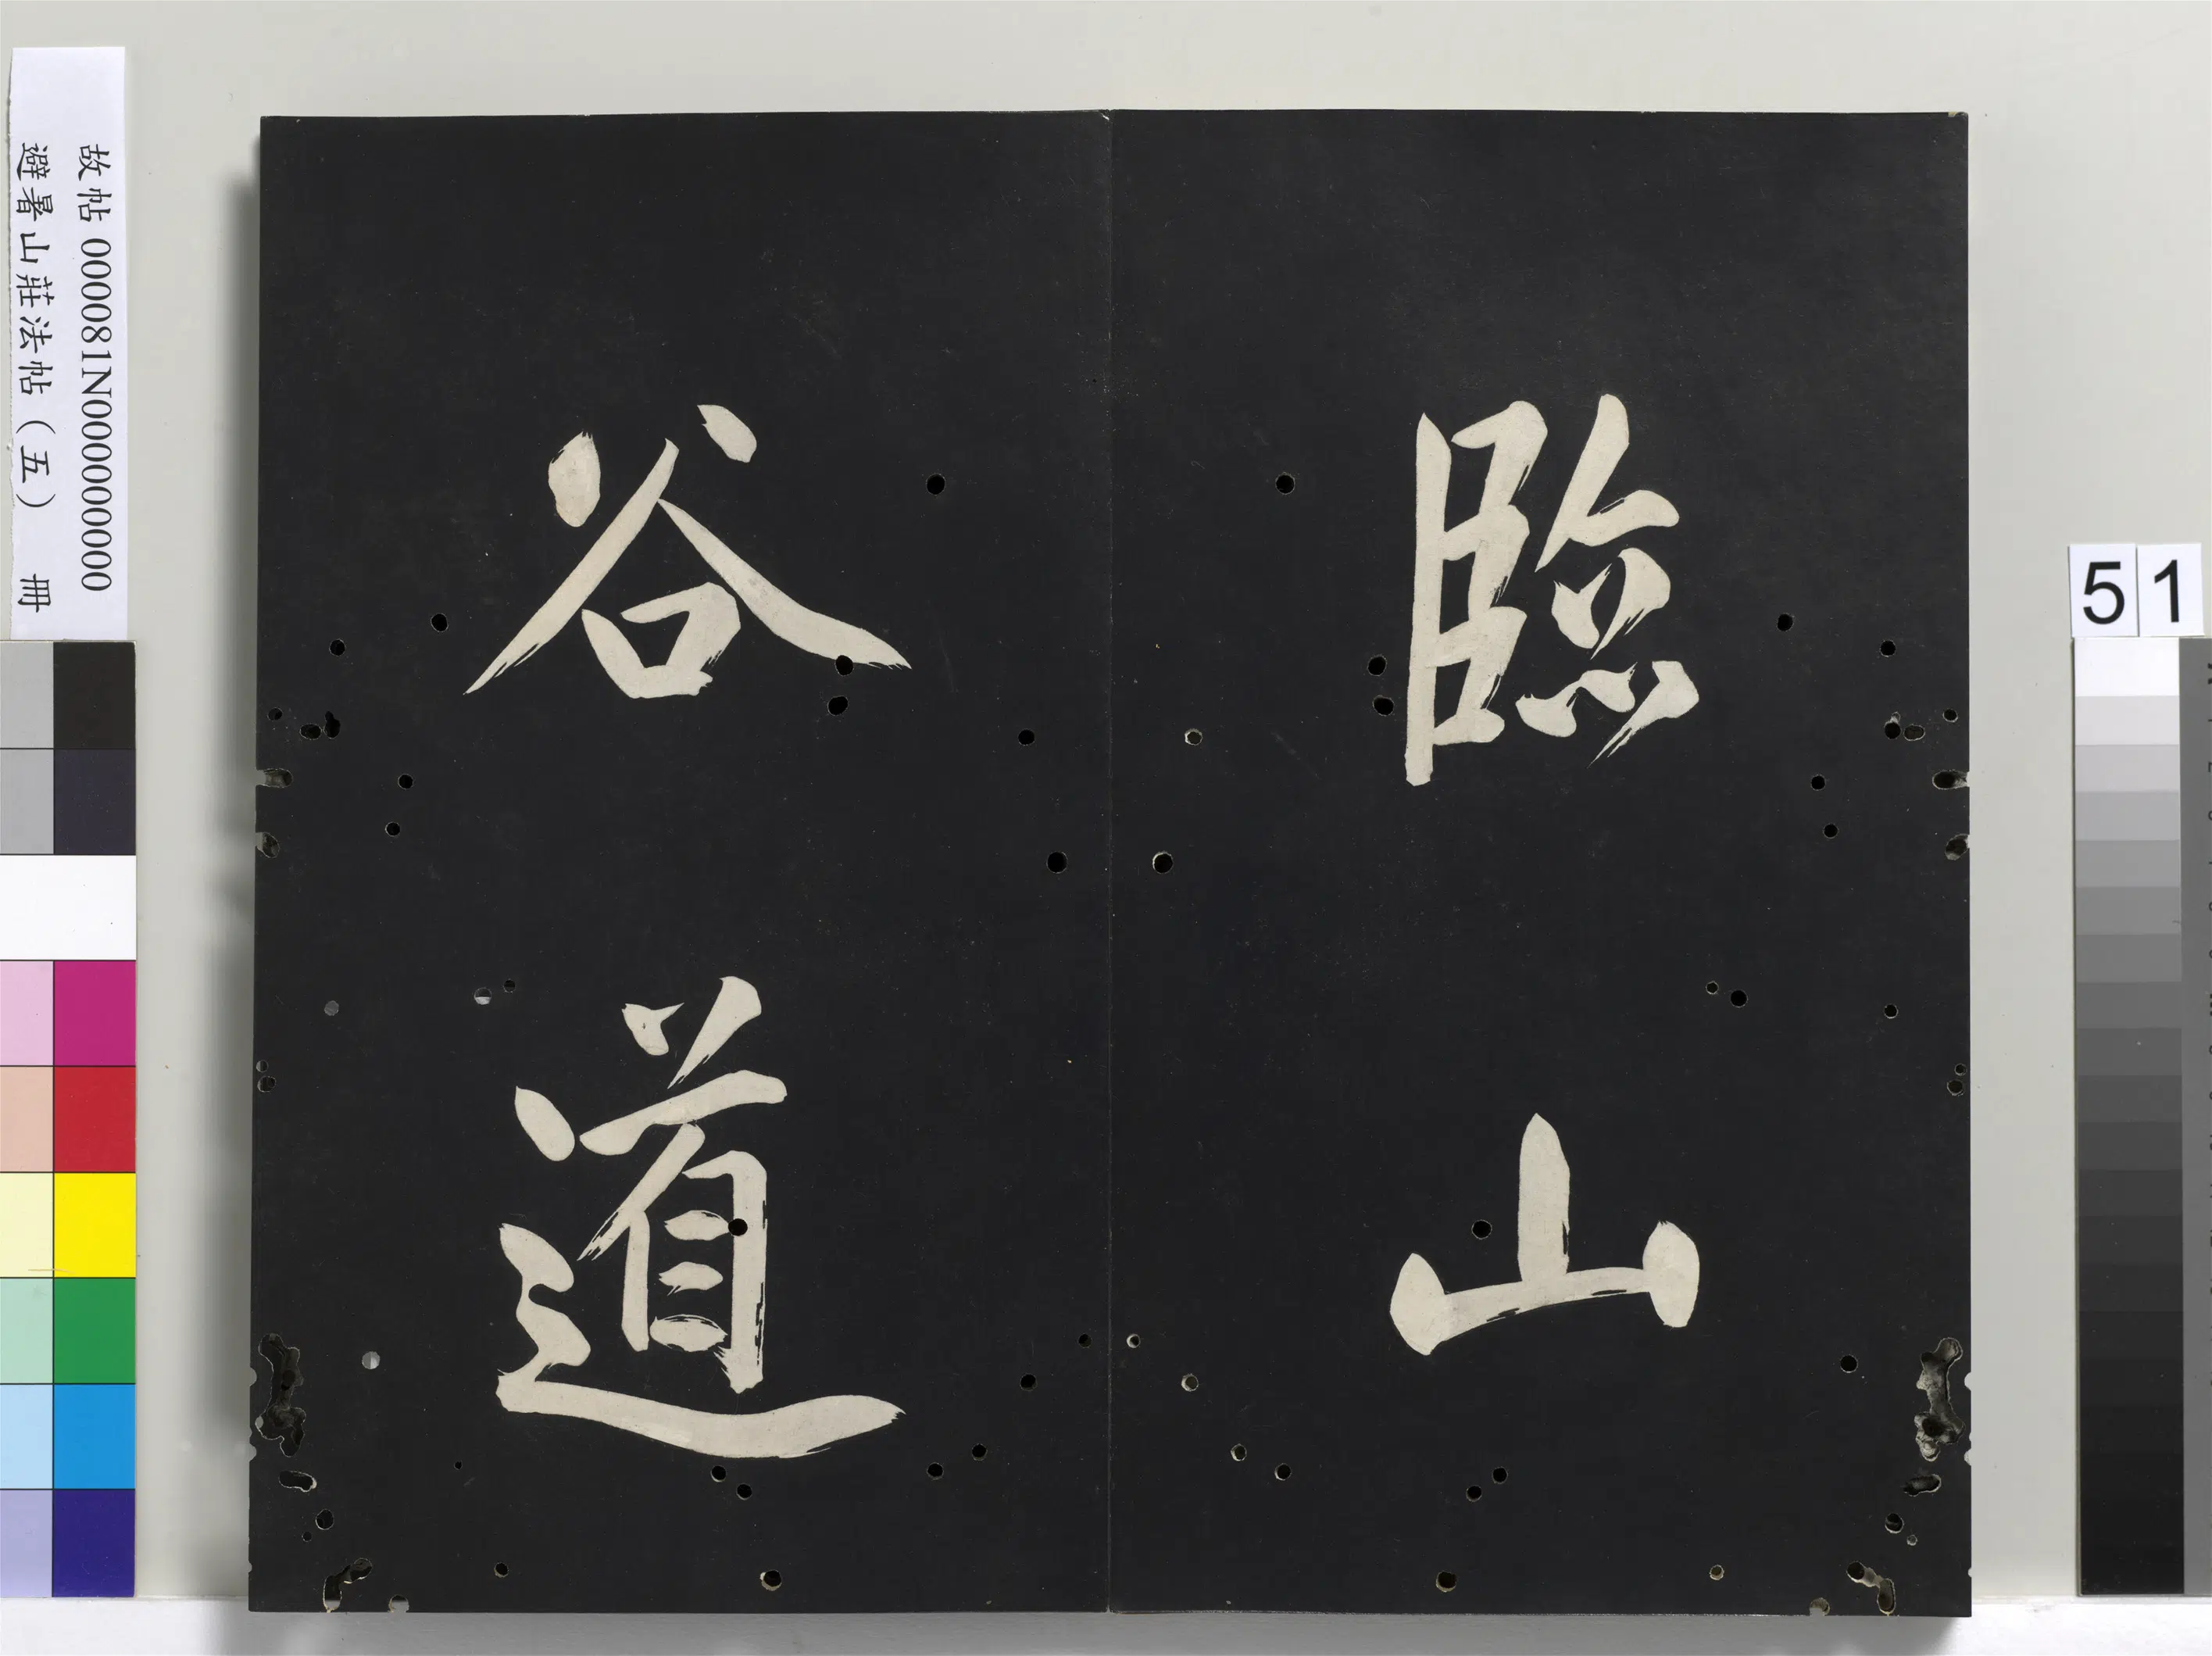 臨山
谷道
故帖 000081N000000000
避暑山莊法帖（五） 冊
51